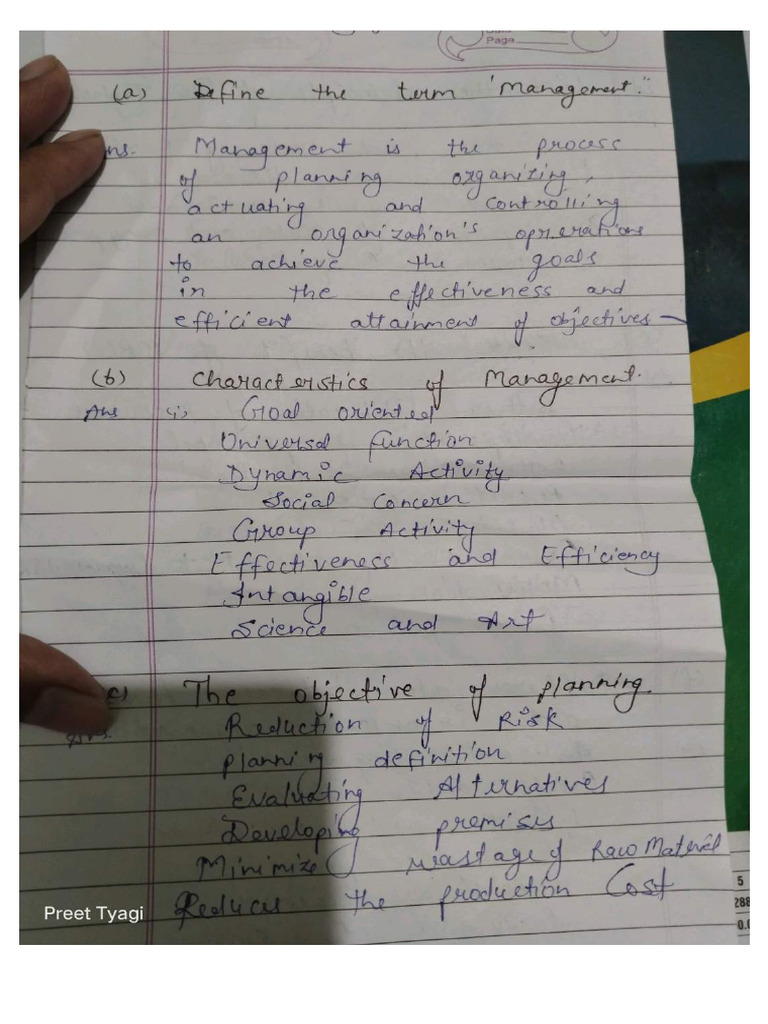 Page
(a) Define the term 'Management."
ns. Management is the process
of planning organizing,
actuating and controlling
an organization's oprerations
to achieve the goals
in the effectiveness and
efficient attainment of objectives
(b) Characteristics of Management.
Ans (i) Goal oriented
Universal function
Dynamic Activity
Social Concern
Group Activity
Effectiveness and Efficiency
Intangible
Science and Art
c) The objective of planning.
Ans. Reduction of Risk
planning definition
Evaluating Alternatives
Developing premises
Minimize wastage of Raw Material
Reduces the production Cost
5
288
0.0
Preet Tyagi